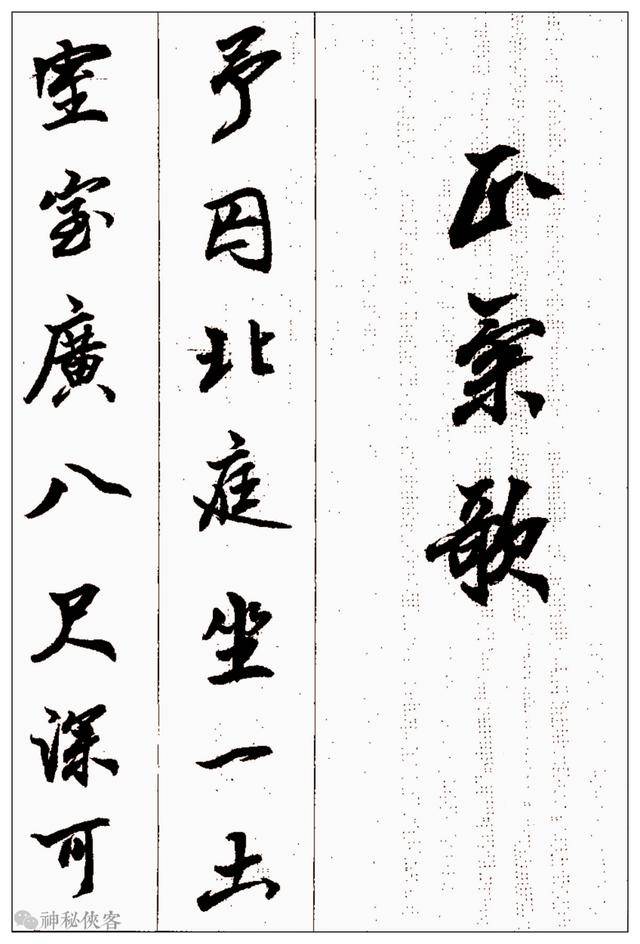 正氣歌
予囚北庭坐一土
室室廣八尺深可
神秘俠客